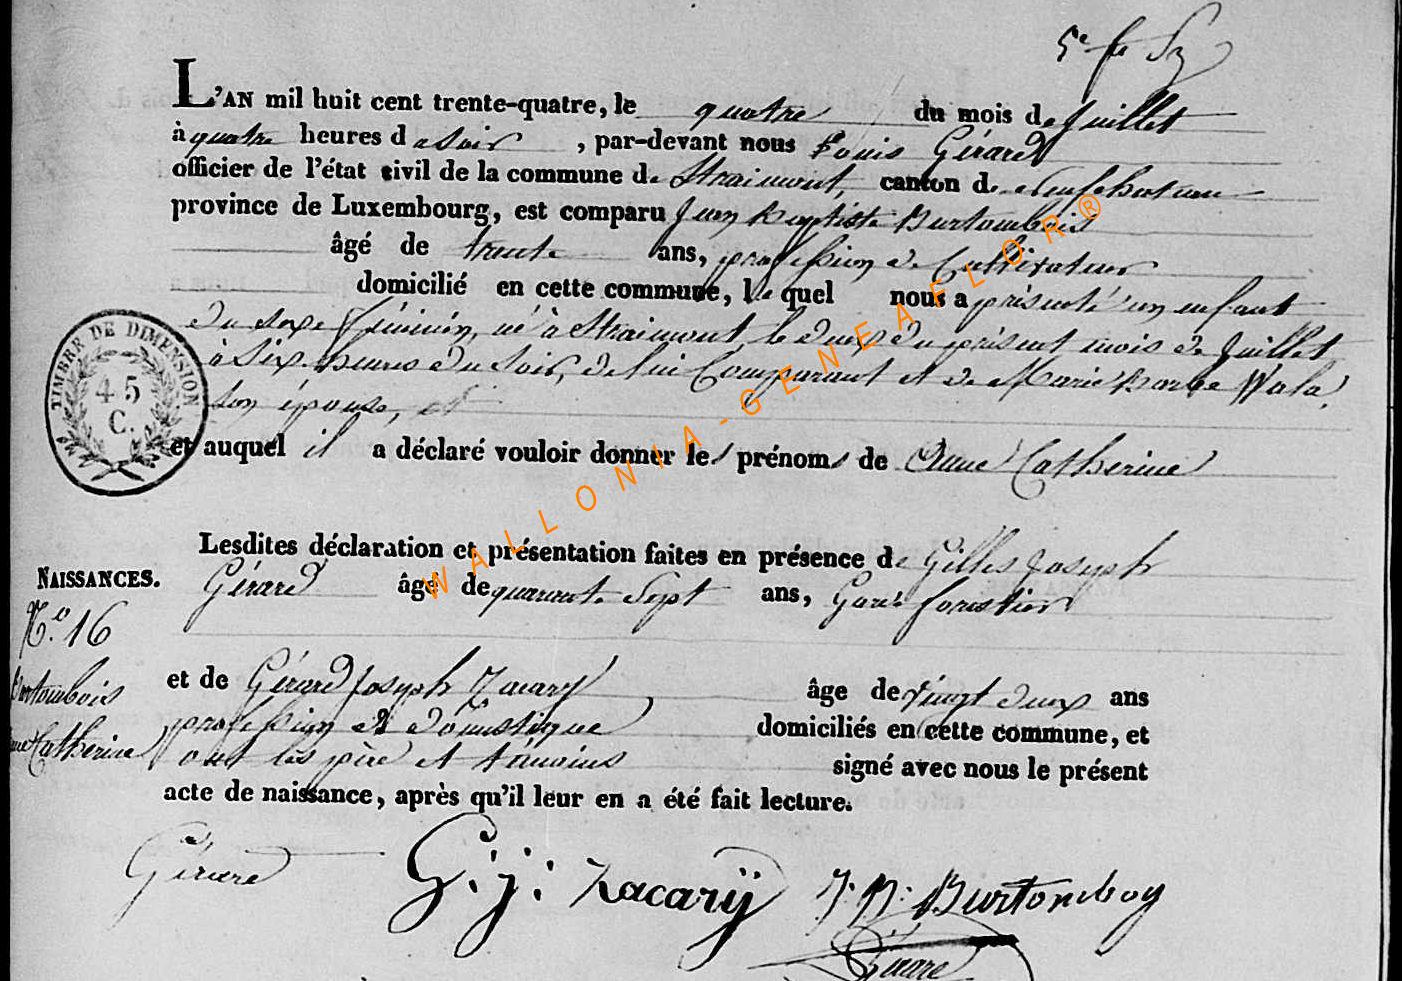 L'AN mil huit cent trente-quatre, le quatre du mois de Juillet
à quatre heures de soir, par-devant nous Louis Gérard
officier de l'état civil de la commune de Straimont, canton de Neufchateau
province de Luxembourg, est comparu Jean Baptiste Burtombois
âgé de trente ans, profession de Cultivateur
domicilié en cette commune, le quel nous a présenté un enfant
du sexe féminin, né à Straimont le deux du présent mois de Juillet
à Six heures du Soir, de lui Comparant et de Marie Barbe Wala,
son épouse, et
et auquel il a déclaré vouloir donner les prénoms de Anne Catherine
Lesdites déclaration et présentation faites en présence de Gilles Joseph
NAISSANCES.
Gérard âgé de quarante Sept ans, Garde forestier
N.º 16
et de Gérard Joseph Zacary âge de vingt deux ans
Burtombois
profession de domestique domiciliés en cette commune, et
Anne Catherine
ont les père et témoins signé avec nous le présent
acte de naissance, après qu'il leur en a été fait lecture.
Gérard G. j. Zacarÿ J. B. Burtomboy
Gérard
TIMBRE DE DIMENSION
45
C.
WALLONIA-GENEAFLOR®